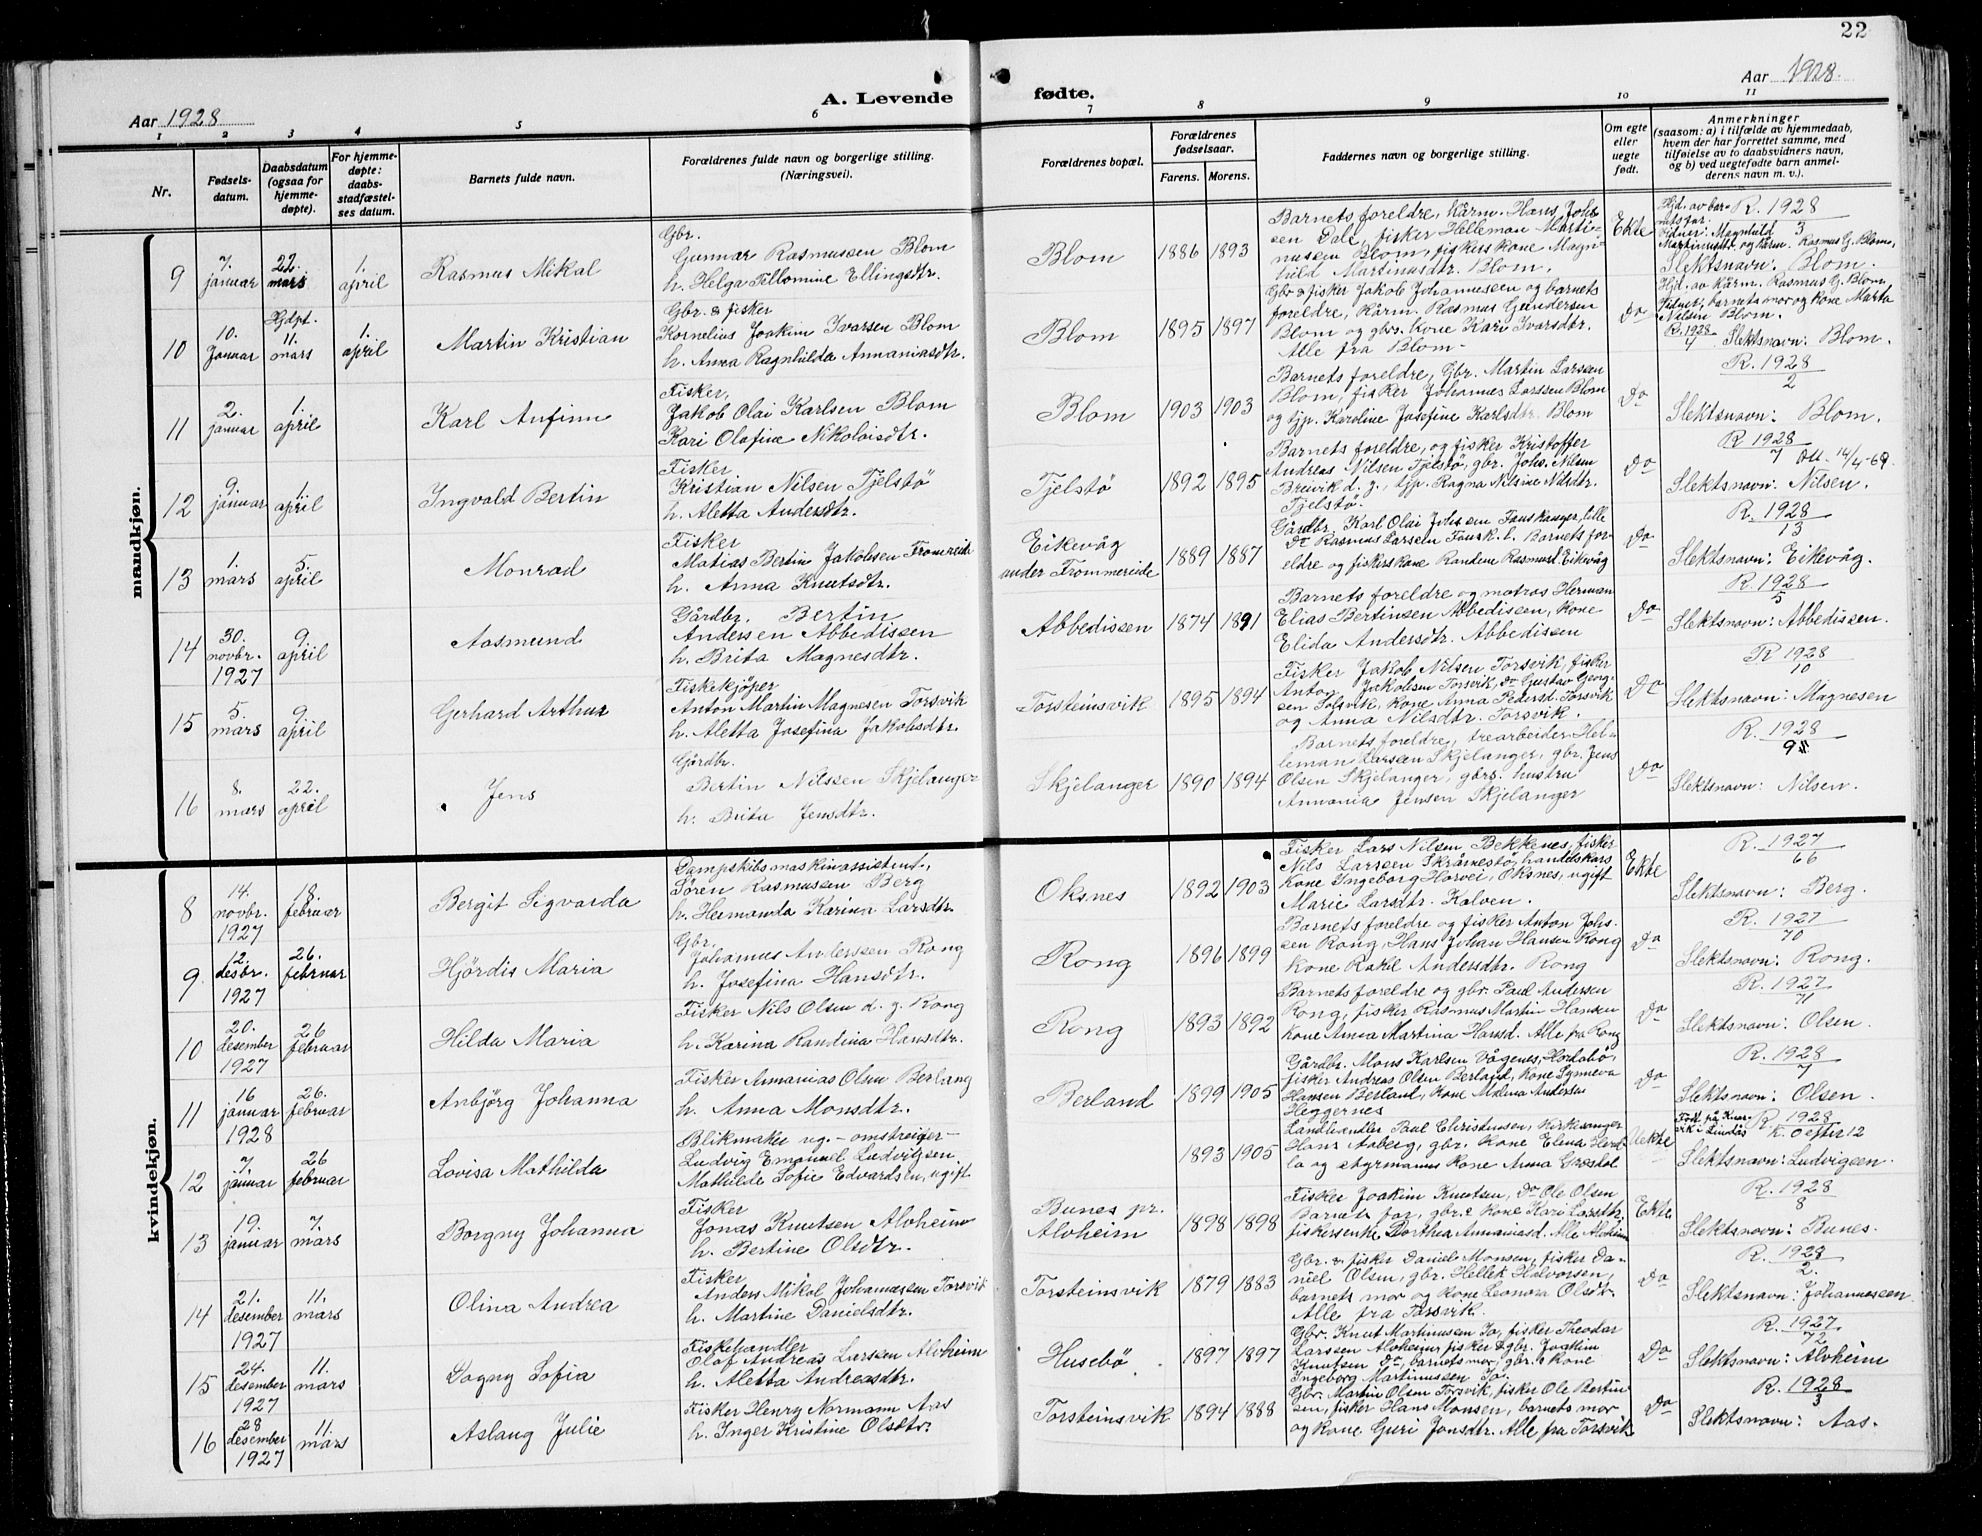 22
Aar 1928
A. Levende
fødte.
Aar 1928.
1 2 3 4 5 6 7 8 9 10 11
Nr.
Fødsels-
datum.
Daabsdatum
(ogsaa for
hjemme-
døpte).
For hjemme-
døpte:
daabs-
stadfæstel-
ses datum.
Barnets fulde navn.
Forældrenes fulde navn og borgerlige stilling.
(Næringsvei).
Forældrenes bopæl.
Forældrenes
fødselsaar.
Farens. Morens.
Faddernes navn og borgerlige stilling.
Om egte
eller
uegte
født.
Anmerkninger
(saasom: a) i tilfælde av hjemmedaab,
hvem der har forrettet samme, med
tilføielse av to daabsvidners navn,
og b) ved uegtefødte barn anmel-
derens navn m. v.).
mandkjøn.
9
7.
januar
22.
mars
1.
april
Rasmus Mikal
Gbr.
Gunnar Rasmussen Blom
h. Helga Tillomine Ellingsdtr.
Blom
1886 1893
Barnets foreldre, kårm. Hans Johs-
sen Dale, fisker Helleman Marti-
nussen Blom, fiskerskone Magn-
hild Martinusdtr. Blom.
Ekte
Hjd. av bar-
nets far.
R. 1928
3
Vidner: Magnhild
Martinusdtr. og kårm. Rasmus G. Blom,
Slektsnavn: Blom.
10
10.
Januar
Hjdpt.
11.
mars
1.
april
Martin Kristian
Gbr. & fisker
Kornelius Joakim Ivarsen Blom
h. Anna Ragnhilda Annaniasdtr.
Blom
1895 1897
Gbr & fisker Jakob Johannesen og barnets
foreldre, kårm. Rasmus Gundersen
Blom og gbr. kone Kari Ivarsdtr.
Alle fra Blom-
do
Hjd. av kårm. Rasmus G. Blom.
Vidner, barnets mor og kone Marta
Nilsen Blom.
R. 1928
7
Slektsnavn: Blom.
11
2.
januar
1.
april
Karl Anfinn
Fisker,
Jakob Olai Karlsen Blom
Kari Olafine Nikolaisdtr.
Blom
1903 1903
Barnets foreldre, Gbr. Martin Larssen
Blom, fisker Johannes Larssen Blom
og tjp. Karoline Josefine Karlsdtr. Blom
do
R. 1928
2
Slektsnavn: Blom.
12
9.
januar
1.
april
Ingvald Bertin
Fisker,
Kristian Nilsen Tjelstö
h. Aletta Andersdtr.
Tjelstö
1892 1895
Barnets foreldre, og fisker Kristoffer
Andreas Nilsen Tjelstö, gbr. Johs. Nilsen
Breivik d. y., tjp. Ragna Nilsine Nilsdtr.
Tjelstö.
do
R 1928
7
Att. 14/4-69.
Slektsnavn: Nilsen.
13
1
mars
5.
april
Monrad
Fisker
Matias Bertin Jakobsen Fromreide
h. Anna Knutsdtr.
Eikevåg
under Frommereide
1889 1887
Gårdbr. Karl Olai Johssen Fauskanger, lille
do Rasmus Larsen Fausk. l. Barnets for-
eldre og fiskerskone Randine Rasmusd. Eikevåg
do
R. 1928
13
Slektsnavn: Eikevåg.
14
30.
novbr.
1927
9.
april
Aasmund
Gårdbr. Bertin
Andersen Abbedissen
h. Brita Magnesdtr.
Abbedissen
1874 1891
Barnets foreldre og matros Herman
Elias Bertinsen Abbedissen, kone
Elida Andersdtr. Abbedissen
do
R. 1928
5
Slektsnavn: Abbedissen.
15
5.
mars
9.
april
Gerhard Arthur
Fiskekjöper
Anton Martin Magnesen Torsvik
h. Aletta Josefina Jakobsdtr.
Torsteinsvik
1895 1894
Fisker Jakob Nilsen Torsvik, fisker
Anton Jakobsen Torsvik, do Gustav Georg-
sen Solsvik, kone Anna Pedersd. Torsvik
og Anna Nilsdtr. Torsvik.
do
R 1928
10
Slektsnavn: Magnesen
16
8.
mars
22.
april
Jens
Gårdbr.
Bertin Nilssen Skjelanger
h. Brita Jensdtr.
Skjelanger
1890 1894
Barnets foreldre, trearbeider Hel-
leman Larssen Skjelanger, gbr. Jens
Olsen Skjelanger, gbrs. hustru
Annania Jensen Skjelanger
do
R. 1928
9
Slektsnavn: Nilsen.
kvindekjøn.
8
14.
novbr.
1927
18.
februar
Bergit Sigvarda
Dampskibsmaskinassistent,
Søren Rasmussen Berg
h. Hermanda Karina Larsdtr.
Oksnes
1892 1903
Fisker Lars Nilsen Bekkenes, fisker
Nils Larssen Skråmestö, handelskars
kone Ingeborg Horvei, Oksnes, ugift
Marie Larsdtr. Kalven.
Ekte
R. 1927
66
Slektsnavn: Berg.
9
12.
desbr.
1927
26.
februar
Hjördis Maria
Gbr.
Johannes Anderssen Rong
h. Josefina Hansdtr.
Rong
1896 1899
Barnets foreldre og fisker Anton Johs-
sen Rong, Hans Johan Hansen Rong
Kone Rakel Andersdtr. Rong
do
R. 1927
70
Slektsnavn: Rong.
10
20.
desember
1927
26
februar
Hilda Maria
Fisker Nils Olsen d. y. Rong
h. Karina Randina Hansdtr.
Rong
1893 1892
Barnets foreldre og gbr. Paul Andersen
Rong, fisker Rasmus Martin Hansen
Kone Anna Martina Hansd. Alle fra Rong
do
R. 1927
71
Slektsnavn: Olsen.
11
16
januar
1928
26.
februar
Anbjörg Johanna
Fisker Annanias Olsen Berland
h. Anna Monsdtr.
Berland
1899 1905
Gårdbr. Mons Karlsen Vågenes, Hordabö,
fisker Andreas Olsen Berland, kone Synneva
Hansen Berland, kone Malena Andersen
Heggernes
do
R. 1928
7
Slektsnavn: Olsen.
12
7
januar
26
februar
Lovisa Mathilda
Blikmaker ug. - omstreifer-
Ludvig Emanuel Ludvigsen
Mathilde Sofie Edvardsen, ugift
1893 1905
Landhandler Paul Christensen, kirkesanger
Hans Aaberg, gbr. kone Elena Herd-
la og styrmanns kone Anna
Uekte
Född på Knar-
vik i Lindås
R. 1928
12
Slektsnavn: Ludvigsen.
13
19.
januar
7.
mars
Borgny Johanna
Fisker
Jonas Knutsen Alvheim
h. Bertine Olsdtr.
Bunes pr.
Alvheim
1898 1898
Fisker Joakim Knutsen, do Ole Olsen
Barnets far, gbr.s kone Kari Larsdtr.
fiskersenke Dorthea Annaniasd. Alle Alvheim
Ekte
R. 1928
8
Slektsnavn: Bunes.
14
21.
desember
1927
11.
mars
Olina Andrea
Fisker,
Anders Mikal Johannessen Torsvik
h. Martine Danielsdtr.
Torsteinsvik
1879 1883
Gbr. & fisker Daniel Monsen, fisker Da-
niel Olsen, gbr. Hellek Halvorsen,
barnets mor og kone Leonora Olsdtr.
Alle fra Torsvik.
do
R. 1928
2.
Slektsnavn: Johannessen
15
24.
desember
1927
11.
mars
Dagny Sofia
Fiskehandler
Olaf Andreas Larssen Alvheim
h. Aletta Andreasdtr.
Husebö
1897 1897
Gbr. Knut Martinussen Io, fisker Theodor
Larssen Alvheim, fisker & gbr. Joakim
Knutsen do, barnets mor, gbr.s kone
Ingeborg Martinussen Io.
do
R. 1927
72
Slektsnavn: Alvheim
16
28
desember
1927
11.
mars
Aslaug Julie
Fisker Henry Normann Aas
h. Inger Kristine Olsdtr.
Torsteinsvik
1894 1888
Gbr. Martin Olsen Torsvik, fisker Ole Bertin-
sen, fisker Hans Monsen, barnets mor
og kone Guri Jonsdtr. Alle fra Torsvik
do
R. 1928
3
Slektsnavn: Aas.